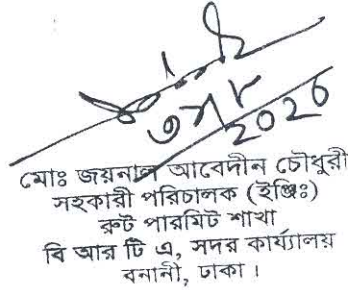 2026
মোঃ জয়নাল আবেদীন চৌধুরী
সহকারী পরিচালক (ইঞ্জিঃ)
রুট পারমিট শাখা
বি আর টি এ, সদর কার্য্যালয়
বনানী, ঢাকা ।